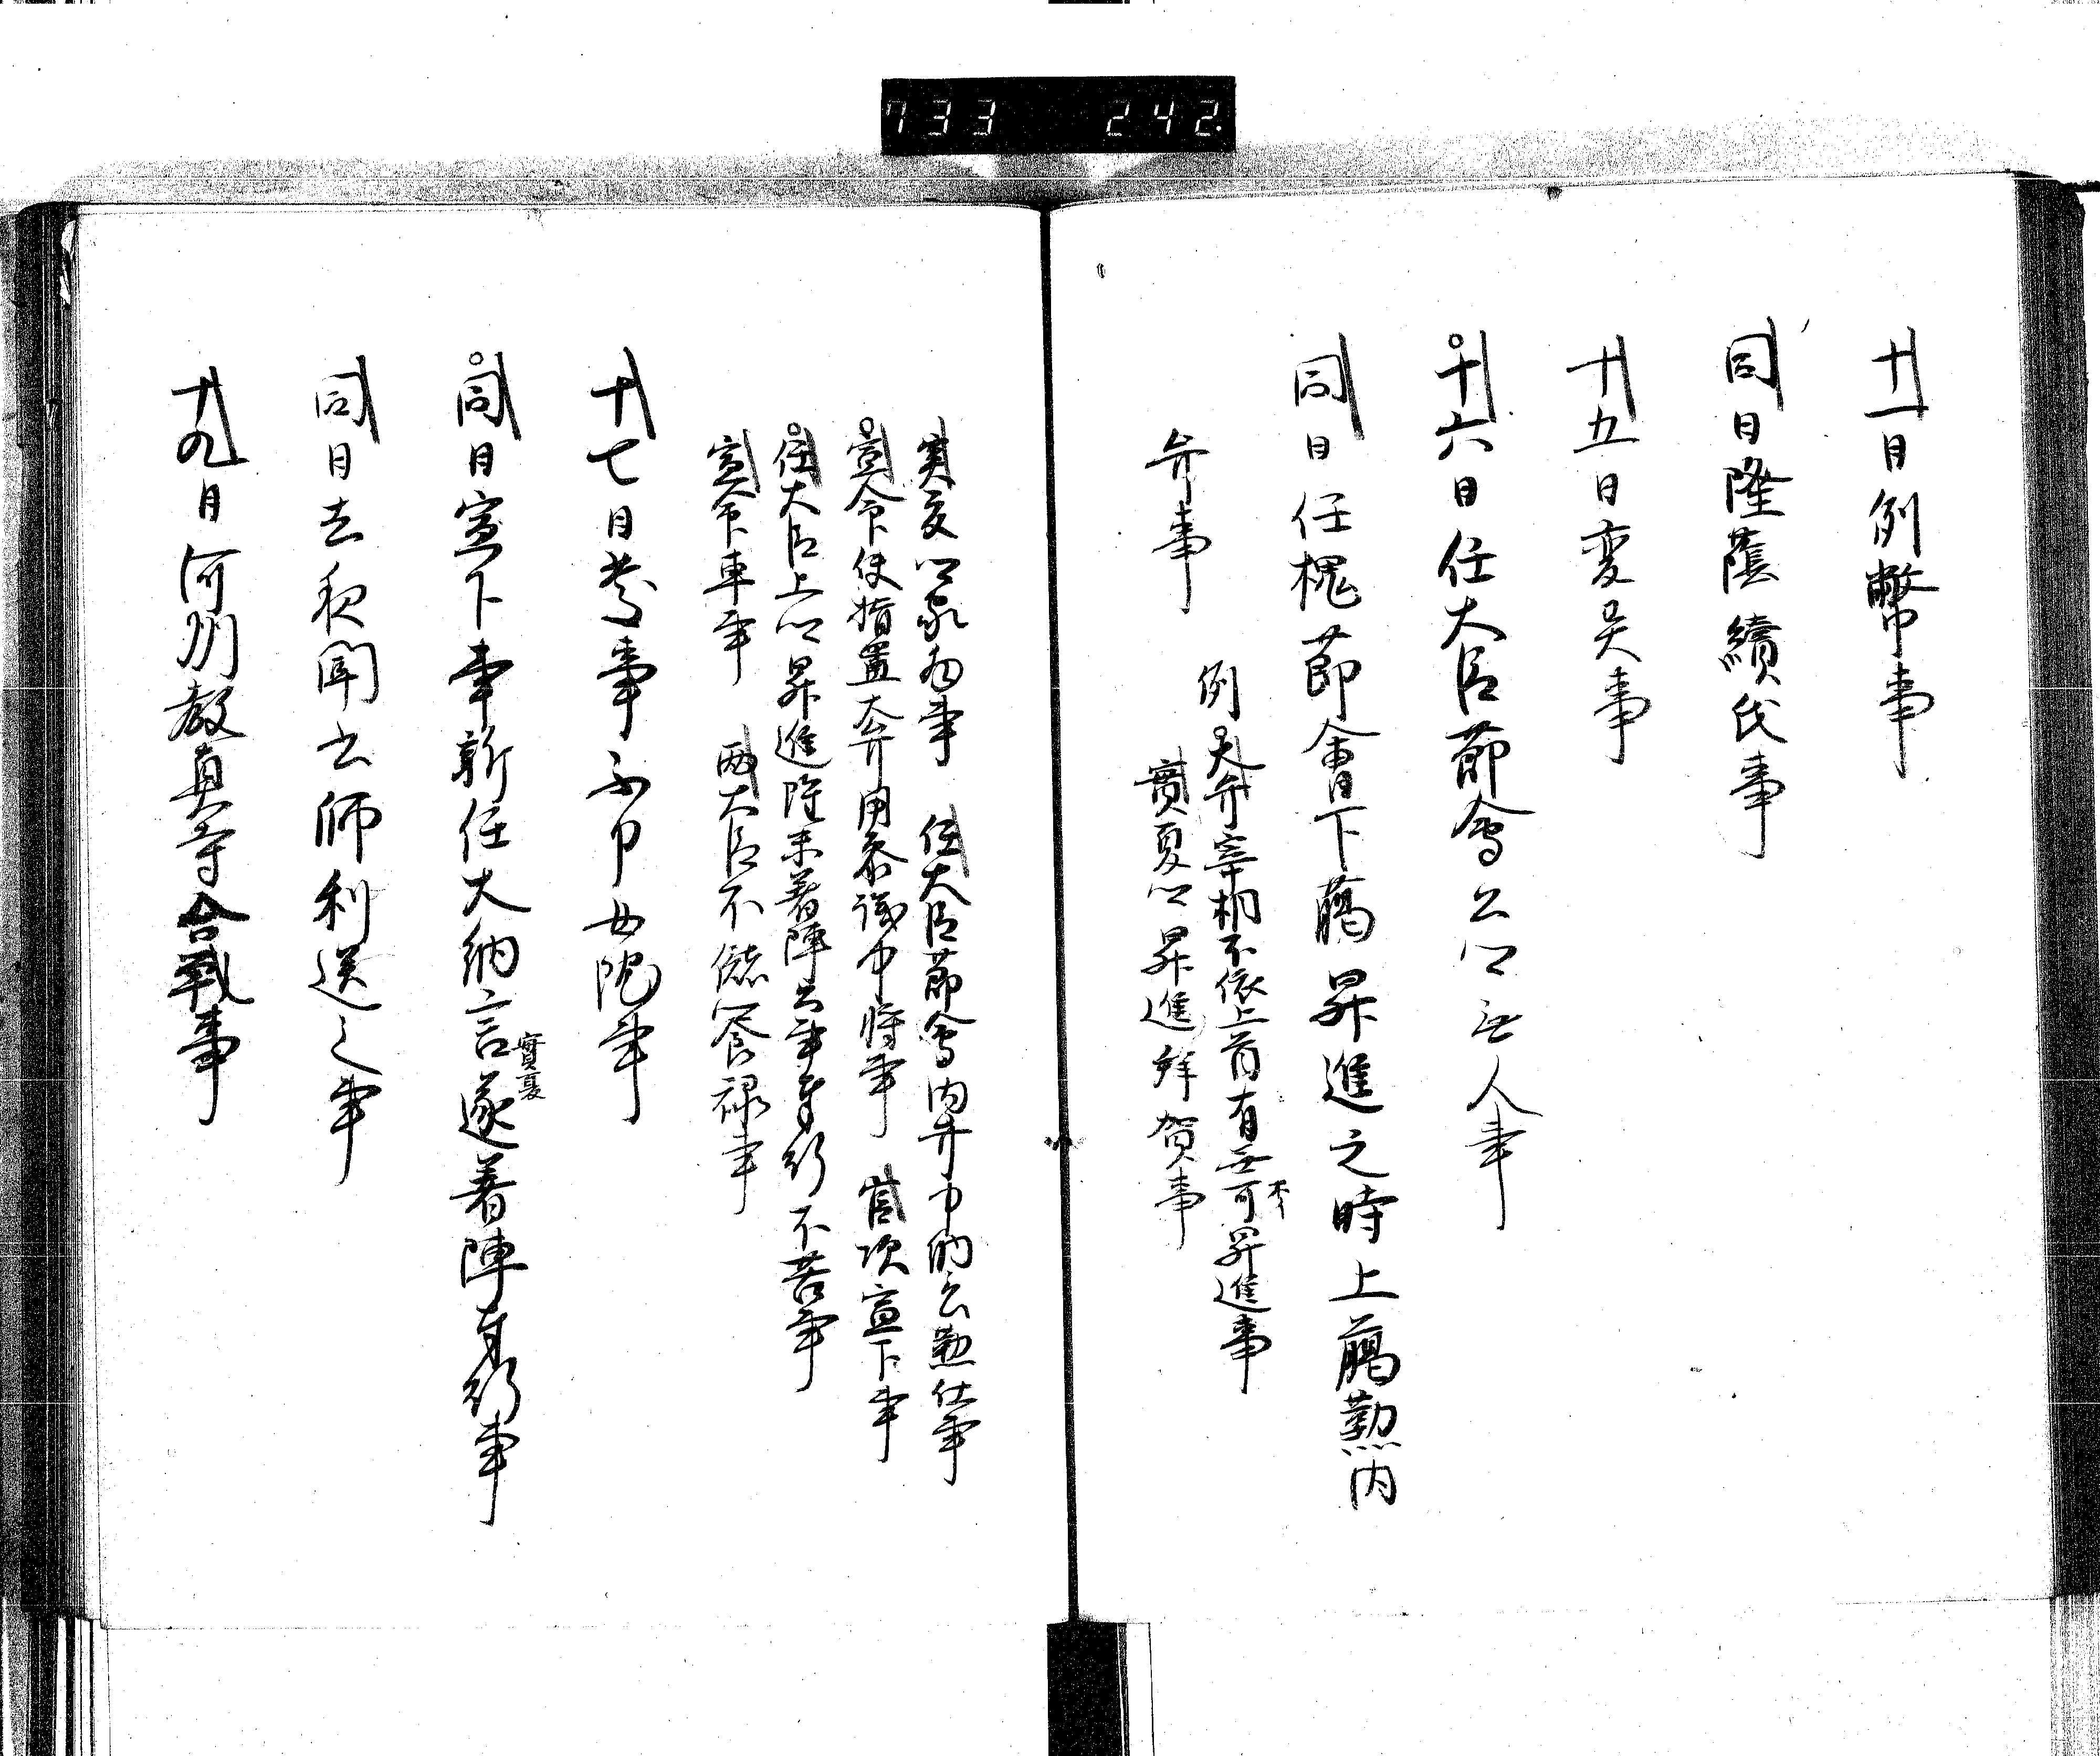 733 242
十一日例幣事
同日隆蔭續氏事
十五日変異事
十六日任大臣節會公卿無人事
同日任槐節會下﨟昇進之時上﨟勤内
弁事
例
大弁宰相不依上首有無可昇進事
實夏卿昇進拝賀事
実夏卿家為事 任大臣節會内弁中納言勤仕事
宣命使揖置大弁用参議中将事 官次宣下事
任大臣上卿昇進除未着陣公事奉行不苦事
宣命下車事 両大臣不儲饗禄事
十七日慶事 不申女院事
同日宣下事新任大納言實夏遂着陣奉行事
同日去夜聞書師利送之事
十九日河州教真寺合戦事